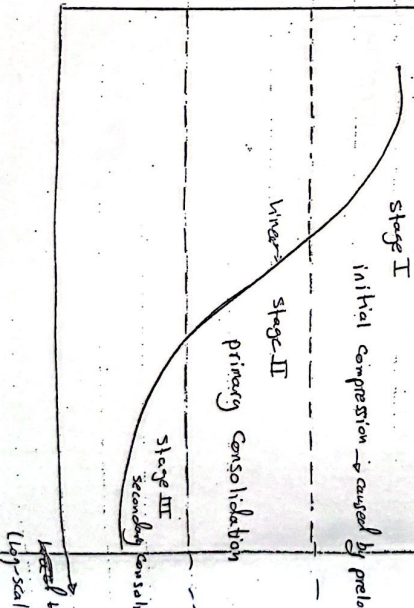 Stage I
initial Compression → caused by prelo
linear
Stage II
primary Consolidation
Stage III
secondary Consoli
(log-scal